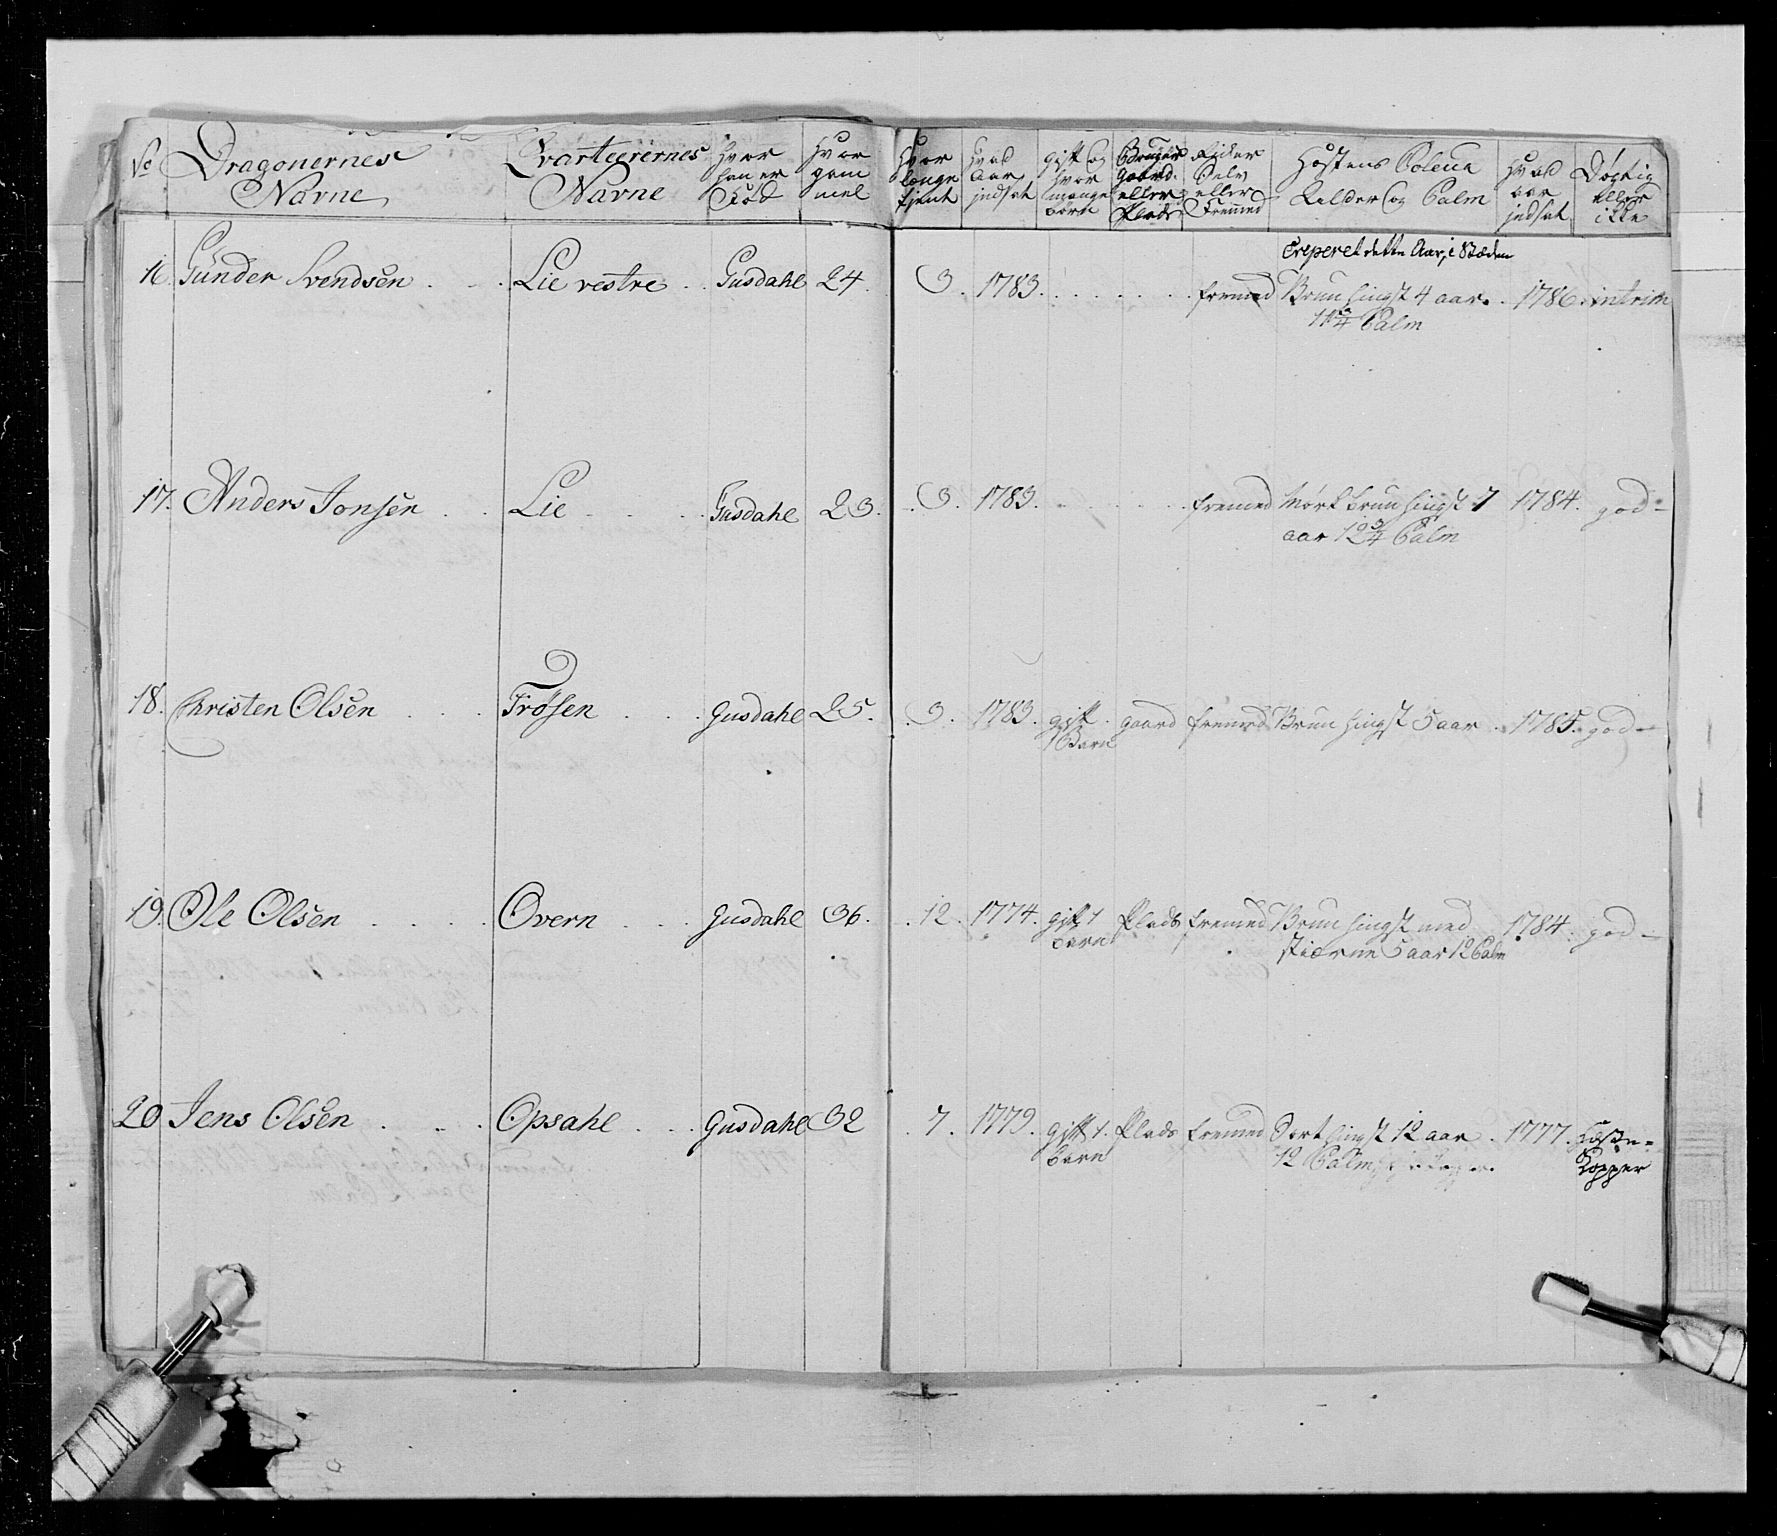 No Dragonernes Navne Qvarteerernes Navne Hvor han er Fød Hvor gam mel Hvor længe tjent Hvad Aar indsat gift og hvor mange børn Bruger gaard eller Plads Rider Selv eller Fremmed Hæstens Coleur Alder og Palm Hvad aar indsat Døgtig eller ikke
Creperet dette Aar, i Stæden
16. Gunder Svendsen Lie vestre Gusdahl 24. 3. 1783. fremed Brun hingst 4 aar. 1786. intrim
11 3/4 Palm
17. Anders Jonsen Lie Gusdahl 23. 3. 1783. fremed Mørk brun hingst 7 1784. god
aar 12 3/4 Palm
18. Christen Olsen Trøsen Gusdahl 25. 3. 1783. gift gaard fremed Brun hingst 5 aar 1785. god
1 Barn
19. Ole Olsen Overn Gusdahl 36. 12. 1774. gift 1 Plads fremed Brun hingst med 1784. god
barn stiærne 5 aar 12 Palm
20 Jens Olsen Opsahl Gusdahl 32 7. 1779. gift 1. Plads fremed Sort hingst 12 aar 1777.
barn 12 Palm Kopper